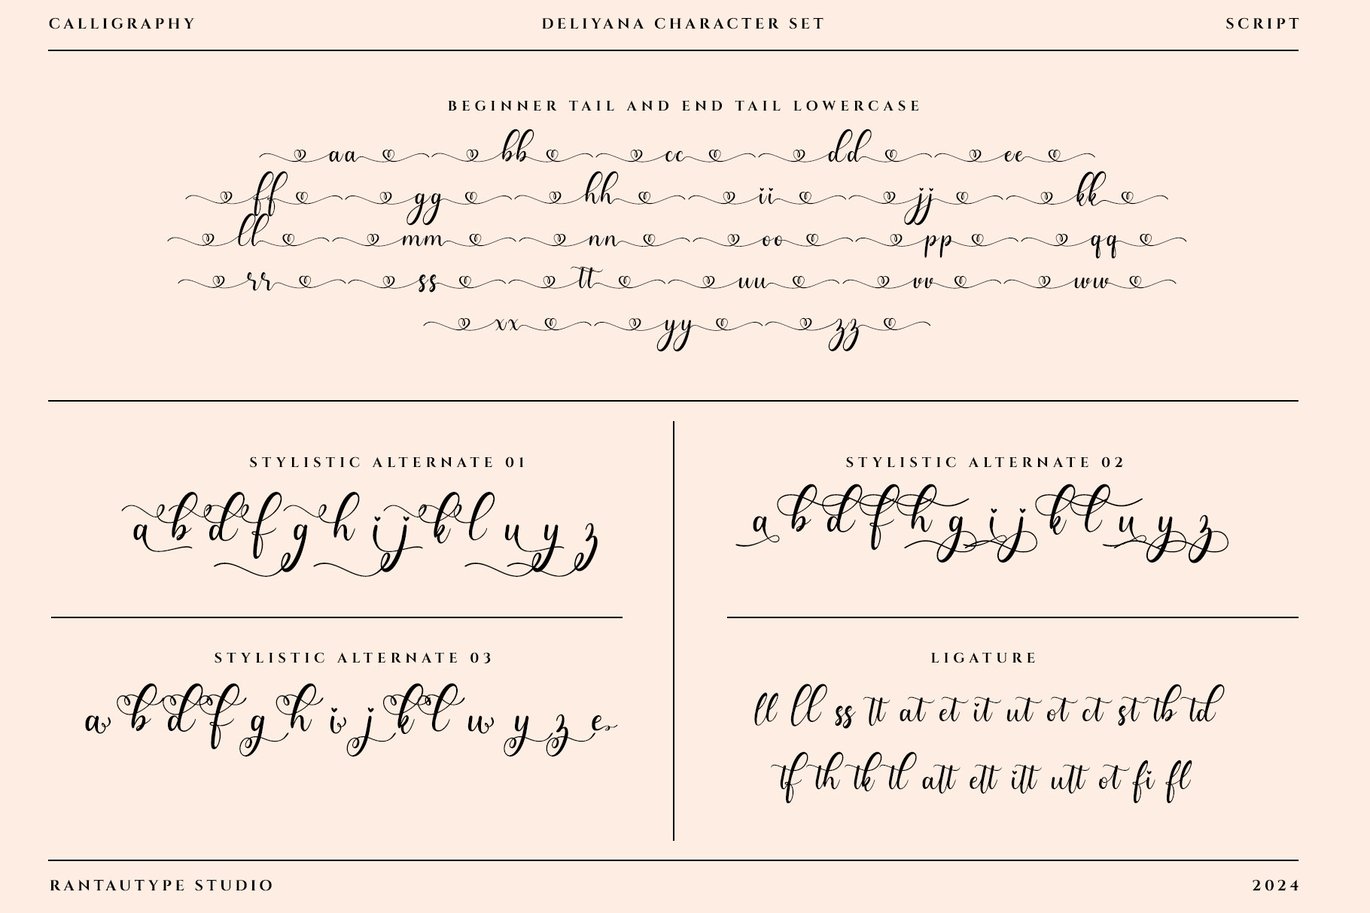 CALLIGRAPHY
DELIYANA CHARACTER SET
SCRIPT
BEGINNER TAIL AND END TAIL LOWERCASE
aa bb cc dd ee
ff gg hh ii jj kk
ll mm nn oo pp qq
rr ss tt uu vv ww
xx yy zz
STYLISTIC ALTERNATE 01
a b d f g h i j k l u y z
STYLISTIC ALTERNATE 02
a b d f h g i j k l u y z
STYLISTIC ALTERNATE 03
a b d f g h i j k l u y z e
LIGATURE
ll ll ss tt at et it ut ot ct st tb td
tf th tk tl att ett itt utt ot fi fl
RANTAUTYPE STUDIO
2024